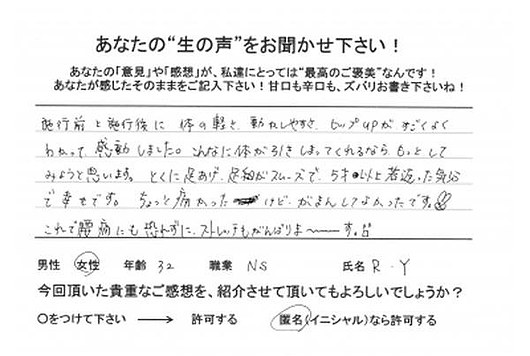 あなたの“生の声”をお聞かせ下さい！
あなたの「意見」や「感想」が、私達にとっては“最高のご褒美”なんです！
あなたが感じたそのままをご記入下さい！甘口も辛口も、ズバリお書き下さいね！
施行前と施行後に 体の軽さ、動かしやすさ、ヒップupがすごくよく
わかって、感動しました。こんなに体が引きしまってくれるなら、もっとして
みようと思います。とくに足あげ、足組がスムーズで、5才以上若返った気分
で幸せです。ちょっと痛かったけど、がまんしてよかったです。
これで腰痛にも恐れずに、ストレッチもがんばりま〜す。
男性 女性 年齢 32 職業 NS 氏名 R.Y
今回頂いた貴重なご感想を、紹介させて頂いてもよろしいでしょうか？
○をつけて下さい → 許可する 匿名(イニシャル)なら許可する